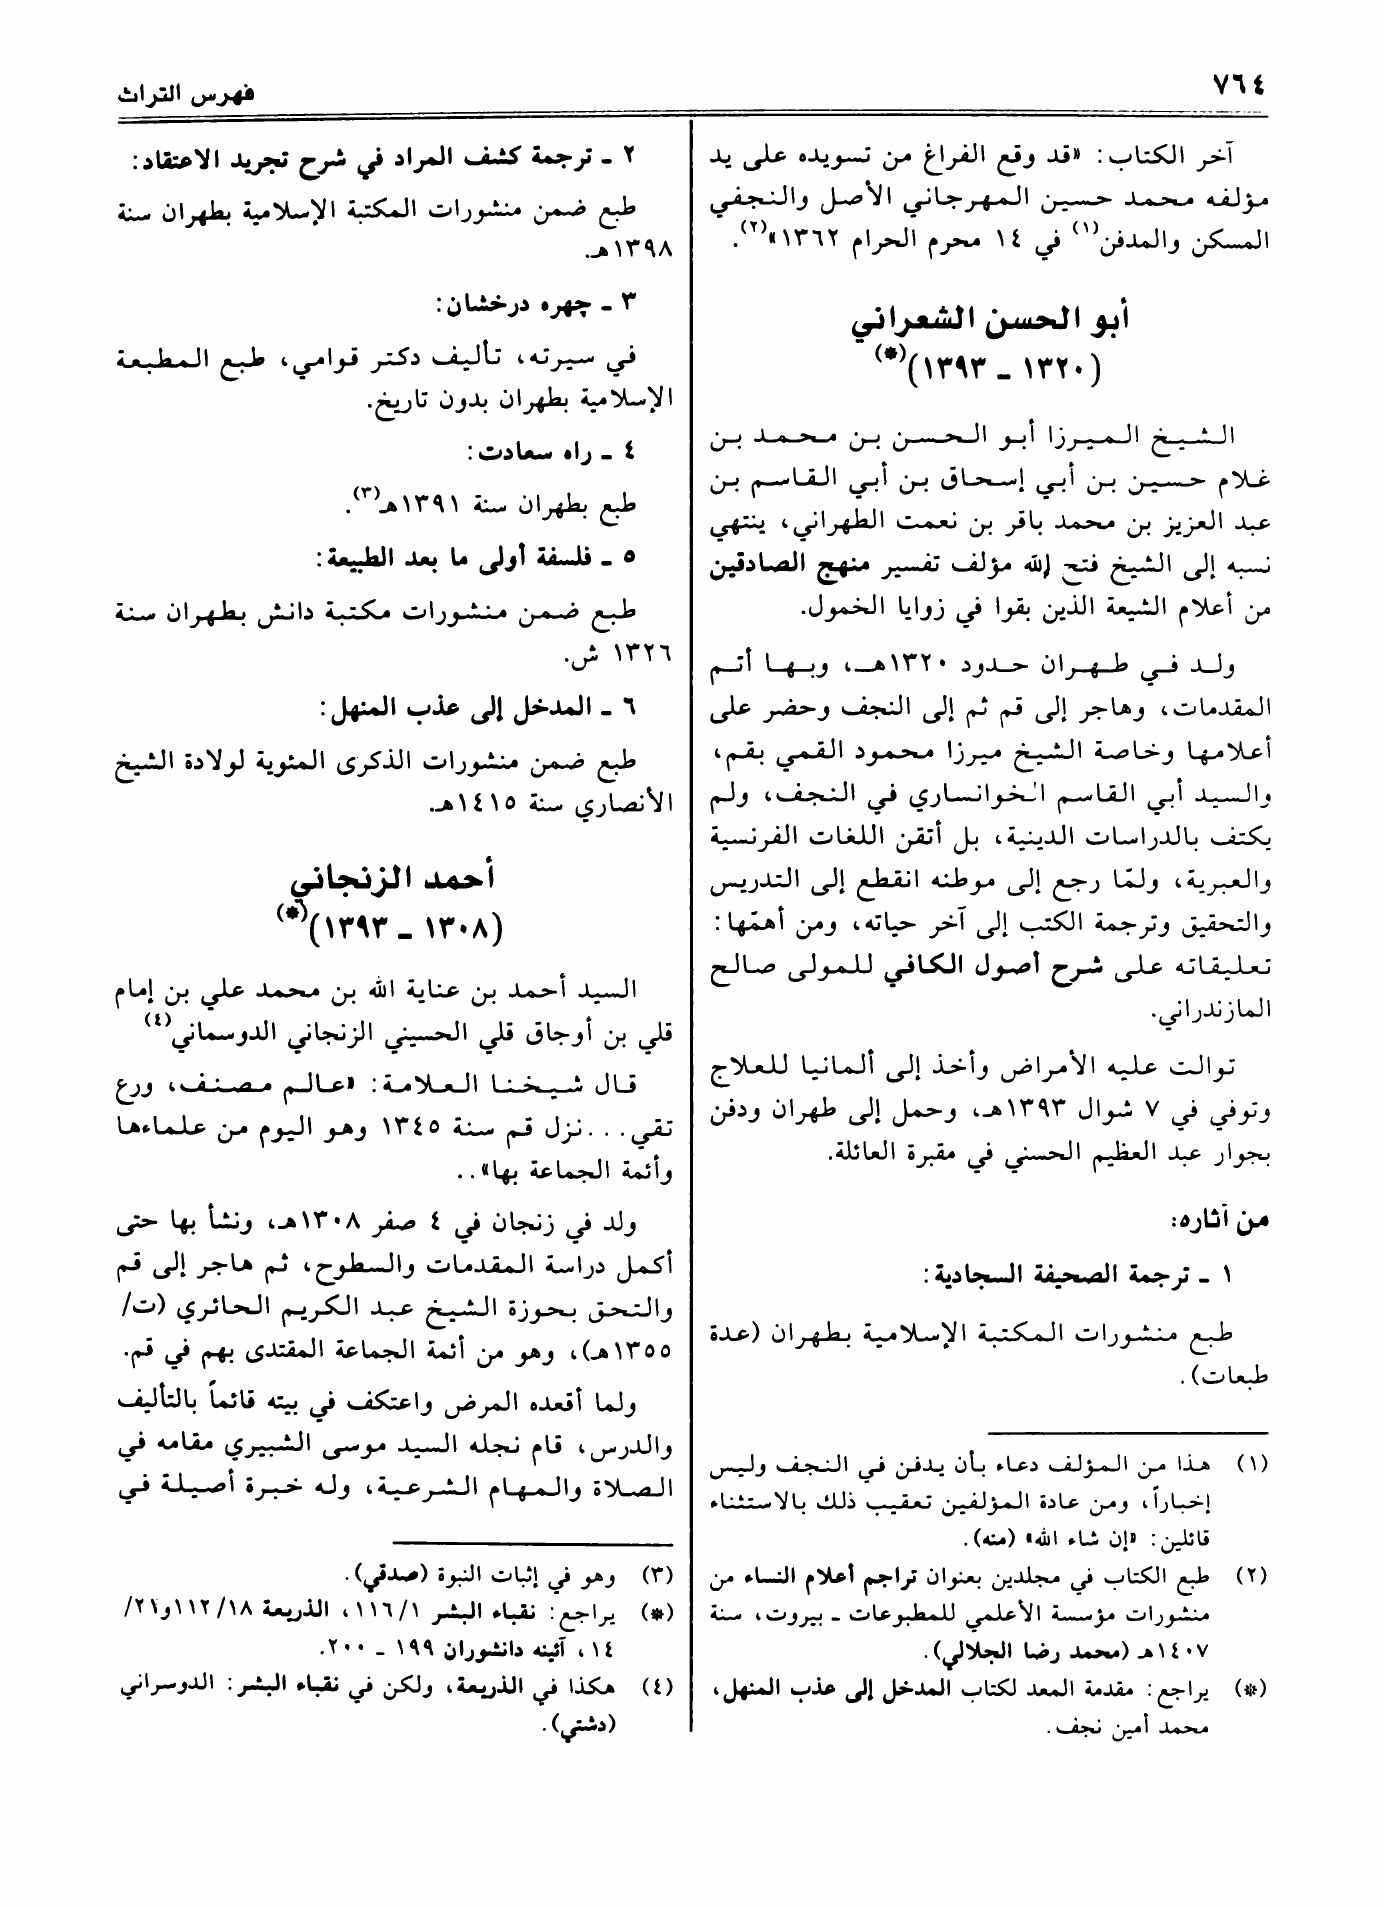 ٧٦٤
فهرس التراث
آخر الكتاب: «قد وقع الفراغ من تسويده على يد
مؤلفه محمد حسين المهرجاني الأصل والنجفي
المسكن والمدفن(١) في ١٤ محرم الحرام ١٣٦٢»(٢).
أبو الحسن الشعراني
(١٣٢٠ ـ ١٣٩٣)(*)
الشيخ الميرزا أبو الحسن بن محمد بن
غلام حسين بن أبي إسحاق بن أبي القاسم بن
عبد العزيز بن محمد باقر بن نعمت الطهراني، ينتهي
نسبه إلى الشيخ فتح الله مؤلف تفسير منهج الصادقين
من أعلام الشيعة الذين بقوا في زوايا الخمول.
ولد في طهران حدود ١٣٢٠هـ، وبها أتم
المقدمات، وهاجر إلى قم ثم إلى النجف وحضر على
أعلامها وخاصة الشيخ ميرزا محمود القمي بقم،
والسيد أبي القاسم الخوانساري في النجف، ولم
يكتف بالدراسات الدينية، بل أتقن اللغات الفرنسية
والعبرية، ولمّا رجع إلى موطنه انقطع إلى التدريس
والتحقيق وترجمة الكتب إلى آخر حياته، ومن أهمّها:
تعليقاته على شرح أصول الكافي للمولى صالح
المازندراني.
توالت عليه الأمراض وأخذ إلى ألمانيا للعلاج
وتوفي في ٧ شوال ١٣٩٣هـ، وحمل إلى طهران ودفن
بجوار عبد العظيم الحسني في مقبرة العائلة.
من آثاره:
١ ـ ترجمة الصحيفة السجادية:
طبع منشورات المكتبة الإسلامية بطهران (عدة
طبعات).
(١) هذا من المؤلف دعاء بأن يدفن في النجف وليس
إخباراً، ومن عادة المؤلفين تعقيب ذلك بالاستثناء
قائلين: «إن شاء الله» (منه).
(٢) طبع الكتاب في مجلدين بعنوان تراجم أعلام النساء من
منشورات مؤسسة الأعلمي للمطبوعات ـ بيروت، سنة
١٤٠٧هـ (محمد رضا الجلالي).
(*) يراجع: مقدمة المعد لكتاب المدخل إلى عذب المنهل،
محمد أمين نجف.
٢ ـ ترجمة كشف المراد في شرح تجريد الاعتقاد:
طبع ضمن منشورات المكتبة الإسلامية بطهران سنة
١٣٩٨هـ.
٣ ـ چهره درخشان:
في سيرته، تأليف دكتر قوامي، طبع المطبعة
الإسلامية بطهران بدون تاريخ.
٤ ـ راه سعادت:
طبع بطهران سنة ١٣٩١هـ(٣).
٥ ـ فلسفة أولى ما بعد الطبيعة:
طبع ضمن منشورات مكتبة دانش بطهران سنة
١٣٢٦ ش.
٦ ـ المدخل إلى عذب المنهل:
طبع ضمن منشورات الذكرى المئوية لولادة الشيخ
الأنصاري سنة ١٤١٥هـ.
أحمد الزنجاني
(١٣٠٨ ـ ١٣٩٣)(*)
السيد أحمد بن عناية الله بن محمد علي بن إمام
قلي بن أوجاق قلي الحسيني الزنجاني الدوسماني(٤)
قال شيخنا العلامة: «عالم مصنف، ورع
تقي...نزل قم سنة ١٣٤٥ وهو اليوم من علماءها
وأئمة الجماعة بها»..
ولد في زنجان في ٤ صفر ١٣٠٨هـ، ونشأ بها حتى
أكمل دراسة المقدمات والسطوح، ثم هاجر إلى قم
والتحق بحوزة الشيخ عبد الكريم الحائري (ت/
١٣٥٥هـ)، وهو من أئمة الجماعة المقتدى بهم في قم.
ولما أقعده المرض واعتكف في بيته قائماً بالتأليف
والدرس، قام نجله السيد موسى الشبيري مقامه في
الصلاة والمهام الشرعية، وله خبرة أصيلة في
(٣) وهو في إثبات النبوة (صدقي).
(*) يراجع: نقباء البشر ١١٦/١، الذريعة ١١٢/١٨ و٢١/
١٤، آئينه دانشوران ١٩٩ ـ ٢٠٠.
(٤) هكذا في الذريعة، ولكن في نقباء البشر: الدوسراني
(دشتي).